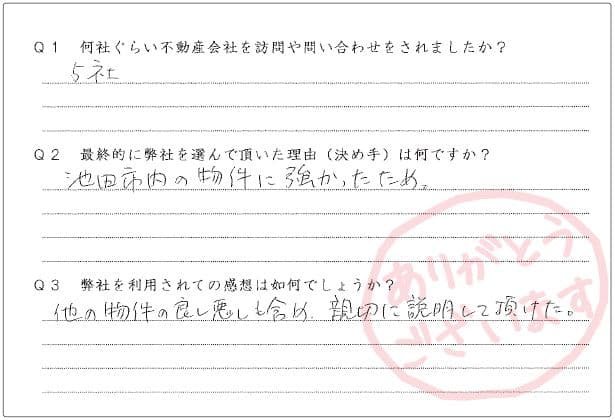 Q1 何社ぐらい不動産会社を訪問や問い合わせをされましたか？
5社
Q2 最終的に弊社を選んで頂いた理由（決め手）は何ですか？
池田市内の物件に強かったため。
Q3 弊社を利用されての感想は如何でしょうか？
他の物件の良し悪しも含め、親切に説明して頂けた。
ありがとう
ございます